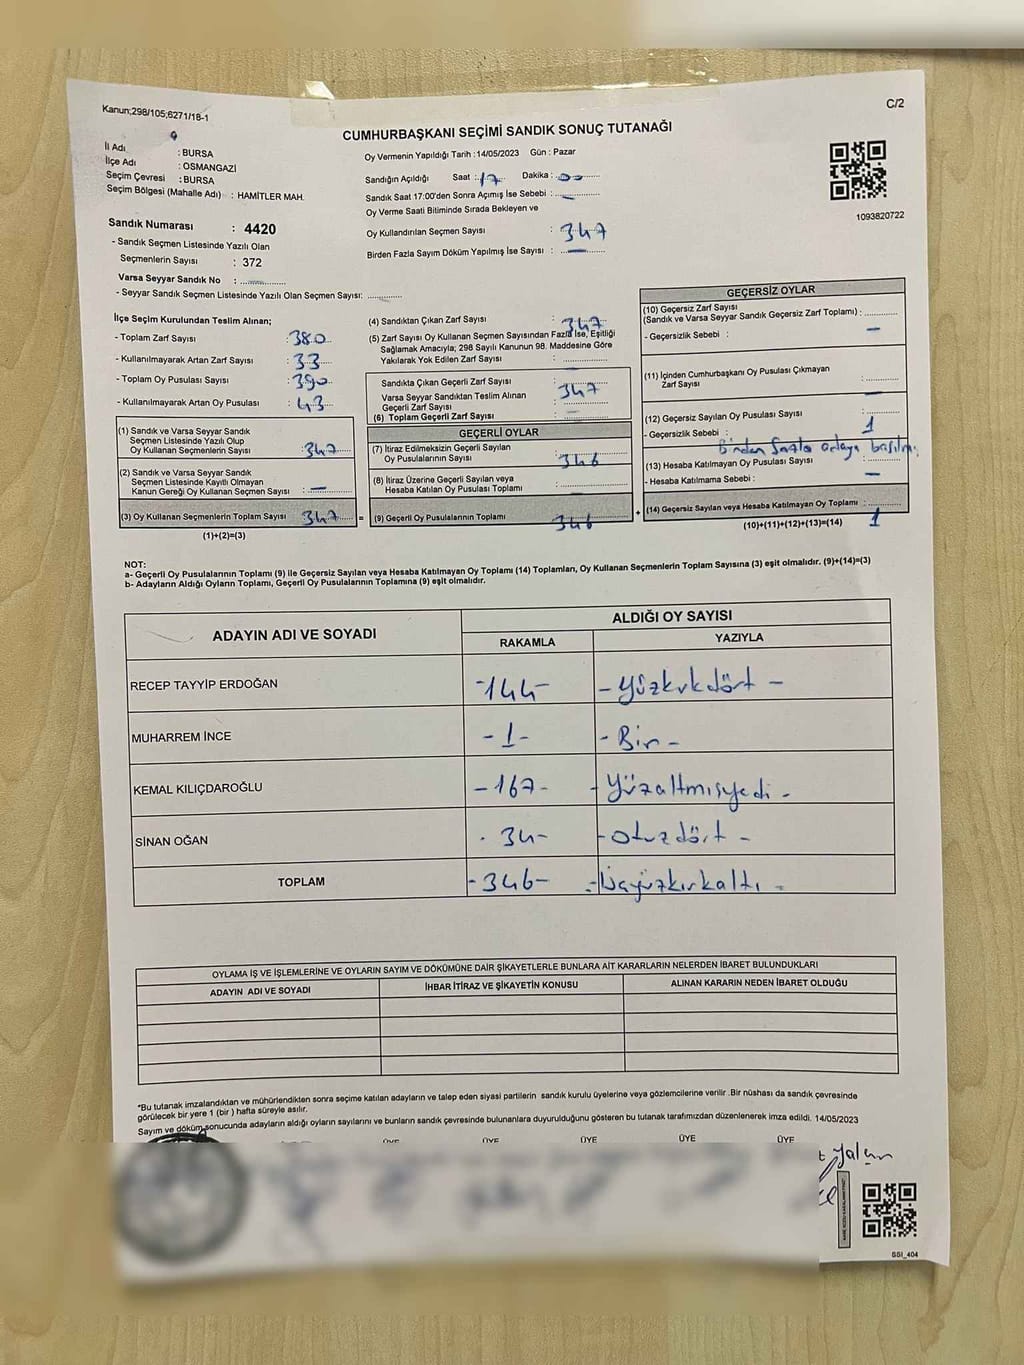 Kanun;298/105;6271/18-1
C/2
CUMHURBAŞKANI SEÇİMİ SANDIK SONUÇ TUTANAĞI
İl Adı : BURSA
İlçe Adı : OSMANGAZİ
Seçim Çevresi : BURSA
Seçim Bölgesi (Mahalle Adı) : HAMİTLER MAH.
Sandık Numarası : 4420
- Sandık Seçmen Listesinde Yazılı Olan
Seçmenlerin Sayısı : 372
Varsa Seyyar Sandık No :
- Seyyar Sandık Seçmen Listesinde Yazılı Olan Seçmen Sayısı:
Oy Vermenin Yapıldığı Tarih : 14/05/2023 Gün : Pazar
Sandığın Açıldığı Saat : 17 Dakika : 00
Sandık Saat 17:00'den Sonra Açımış İse Sebebi :
Oy Verme Saati Bitiminde Sırada Bekleyen ve
Oy Kullandırılan Seçmen Sayısı : 347
Birden Fazla Sayım Döküm Yapılmış İse Sayısı : —
1093820722
İlçe Seçim Kurulundan Teslim Alınan;
- Toplam Zarf Sayısı : 380
- Kullanılmayarak Artan Zarf Sayısı : 33
- Toplam Oy Pusulası Sayısı : 390
- Kullanılmayarak Artan Oy Pusulası : 43
(1) Sandık ve Varsa Seyyar Sandık
Seçmen Listesinde Yazılı Olup
Oy Kullanan Seçmenlerin Sayısı : 347
(2) Sandık ve Varsa Seyyar Sandık
Seçmen Listesinde Kayıtlı Olmayan
Kanun Gereği Oy Kullanan Seçmen Sayısı : —
(3) Oy Kullanan Seçmenlerin Toplam Sayısı 347 =
(1)+(2)=(3)
(4) Sandıktan Çıkan Zarf Sayısı : 347
(5) Zarf Sayısı Oy Kullanan Seçmen Sayısından Fazla İse, Eşitliği
Sağlamak Amacıyla; 298 Sayılı Kanunun 98. Maddesine Göre
Yakılarak Yok Edilen Zarf Sayısı :
Sandıkta Çıkan Geçerli Zarf Sayısı : 347
Varsa Seyyar Sandıktan Teslim Alınan
Geçerli Zarf Sayısı :
(6) Toplam Geçerli Zarf Sayısı :
GEÇERLİ OYLAR
(7) İtiraz Edilmeksizin Geçerli Sayılan
Oy Pusulalarının Sayısı : 346
(8) İtiraz Üzerine Geçerli Sayılan veya
Hesaba Katılan Oy Pusulası Toplamı :
(9) Geçerli Oy Pusulalarının Toplamı : 346 +
GEÇERSİZ OYLAR
(10) Geçersiz Zarf Sayısı
(Sandık ve Varsa Seyyar Sandık Geçersiz Zarf Toplamı) :
- Geçersizlik Sebebi : —
(11) İçinden Cumhurbaşkanı Oy Pusulası Çıkmayan
Zarf Sayısı :
(12) Geçersiz Sayılan Oy Pusulası Sayısı : 1
- Geçersizlik Sebebi : Birden fazla adaya basılmış
(13) Hesaba Katılmayan Oy Pusulası Sayısı :
- Hesaba Katılmama Sebebi : —
(14) Geçersiz Sayılan veya Hesaba Katılmayan Oy Toplamı : 1
(10)+(11)+(12)+(13)=(14)
NOT:
a- Geçerli Oy Pusulalarının Toplamı (9) ile Geçersiz Sayılan veya Hesaba Katılmayan Oy Toplamı (14) Toplamları, Oy Kullanan Seçmenlerin Toplam Sayısına (3) eşit olmalıdır. (9)+(14)=(3)
b- Adayların Aldığı Oyların Toplamı, Geçerli Oy Pusulalarının Toplamına (9) eşit olmalıdır.
ADAYIN ADI VE SOYADI ALDIĞI OY SAYISI
RAKAMLA YAZIYLA
RECEP TAYYİP ERDOĞAN -144- - Yüzkırkdört -
MUHARREM İNCE - 1 - - Bir -
KEMAL KILIÇDAROĞLU - 167 - - Yüzaltmışyedi -
SİNAN OĞAN - 34 - - otuzdört -
TOPLAM - 346 - - üçyüzkırkaltı -
OYLAMA İŞ VE İŞLEMLERİNE VE OYLARIN SAYIM VE DÖKÜMÜNE DAİR ŞİKAYETLERLE BUNLARA AİT KARARLARIN NELERDEN İBARET BULUNDUKLARI
ADAYIN ADI VE SOYADI İHBAR İTİRAZ VE ŞİKAYETİN KONUSU ALINAN KARARIN NEDEN İBARET OLDUĞU
*Bu tutanak imzalandıktan ve mühürlendikten sonra seçime katılan adayların ve talep eden siyasi partilerin sandık kurulu üyelerine veya gözlemcilerine verilir .Bir nüshası da sandık çevresinde
görülecek bir yere 1 (bir ) hafta süreyle asılır.
Sayım ve döküm sonucunda adayların aldığı oyların sayılarını ve bunların sandık çevresinde bulunanlara duyurulduğunu gösteren bu tutanak tarafımızdan düzenlenerek imza edildi. 14/05/2023
ÜYE ÜYE ÜYE ÜYE ÜYE
Yalçın
SSI_404